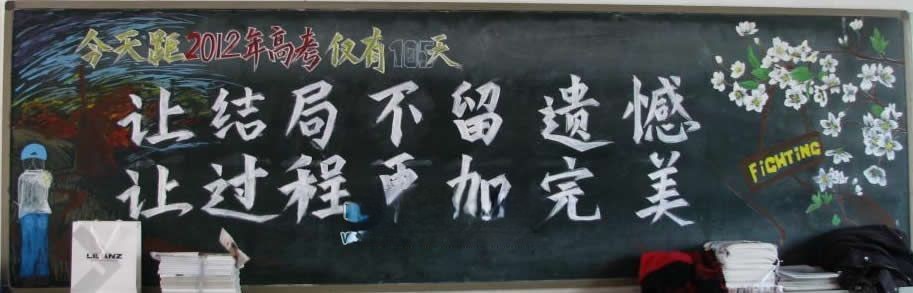 今天距2012年高考仅有105天
让结局不留遗憾
让过程更加完美
FiGHTiNG
LILANZ